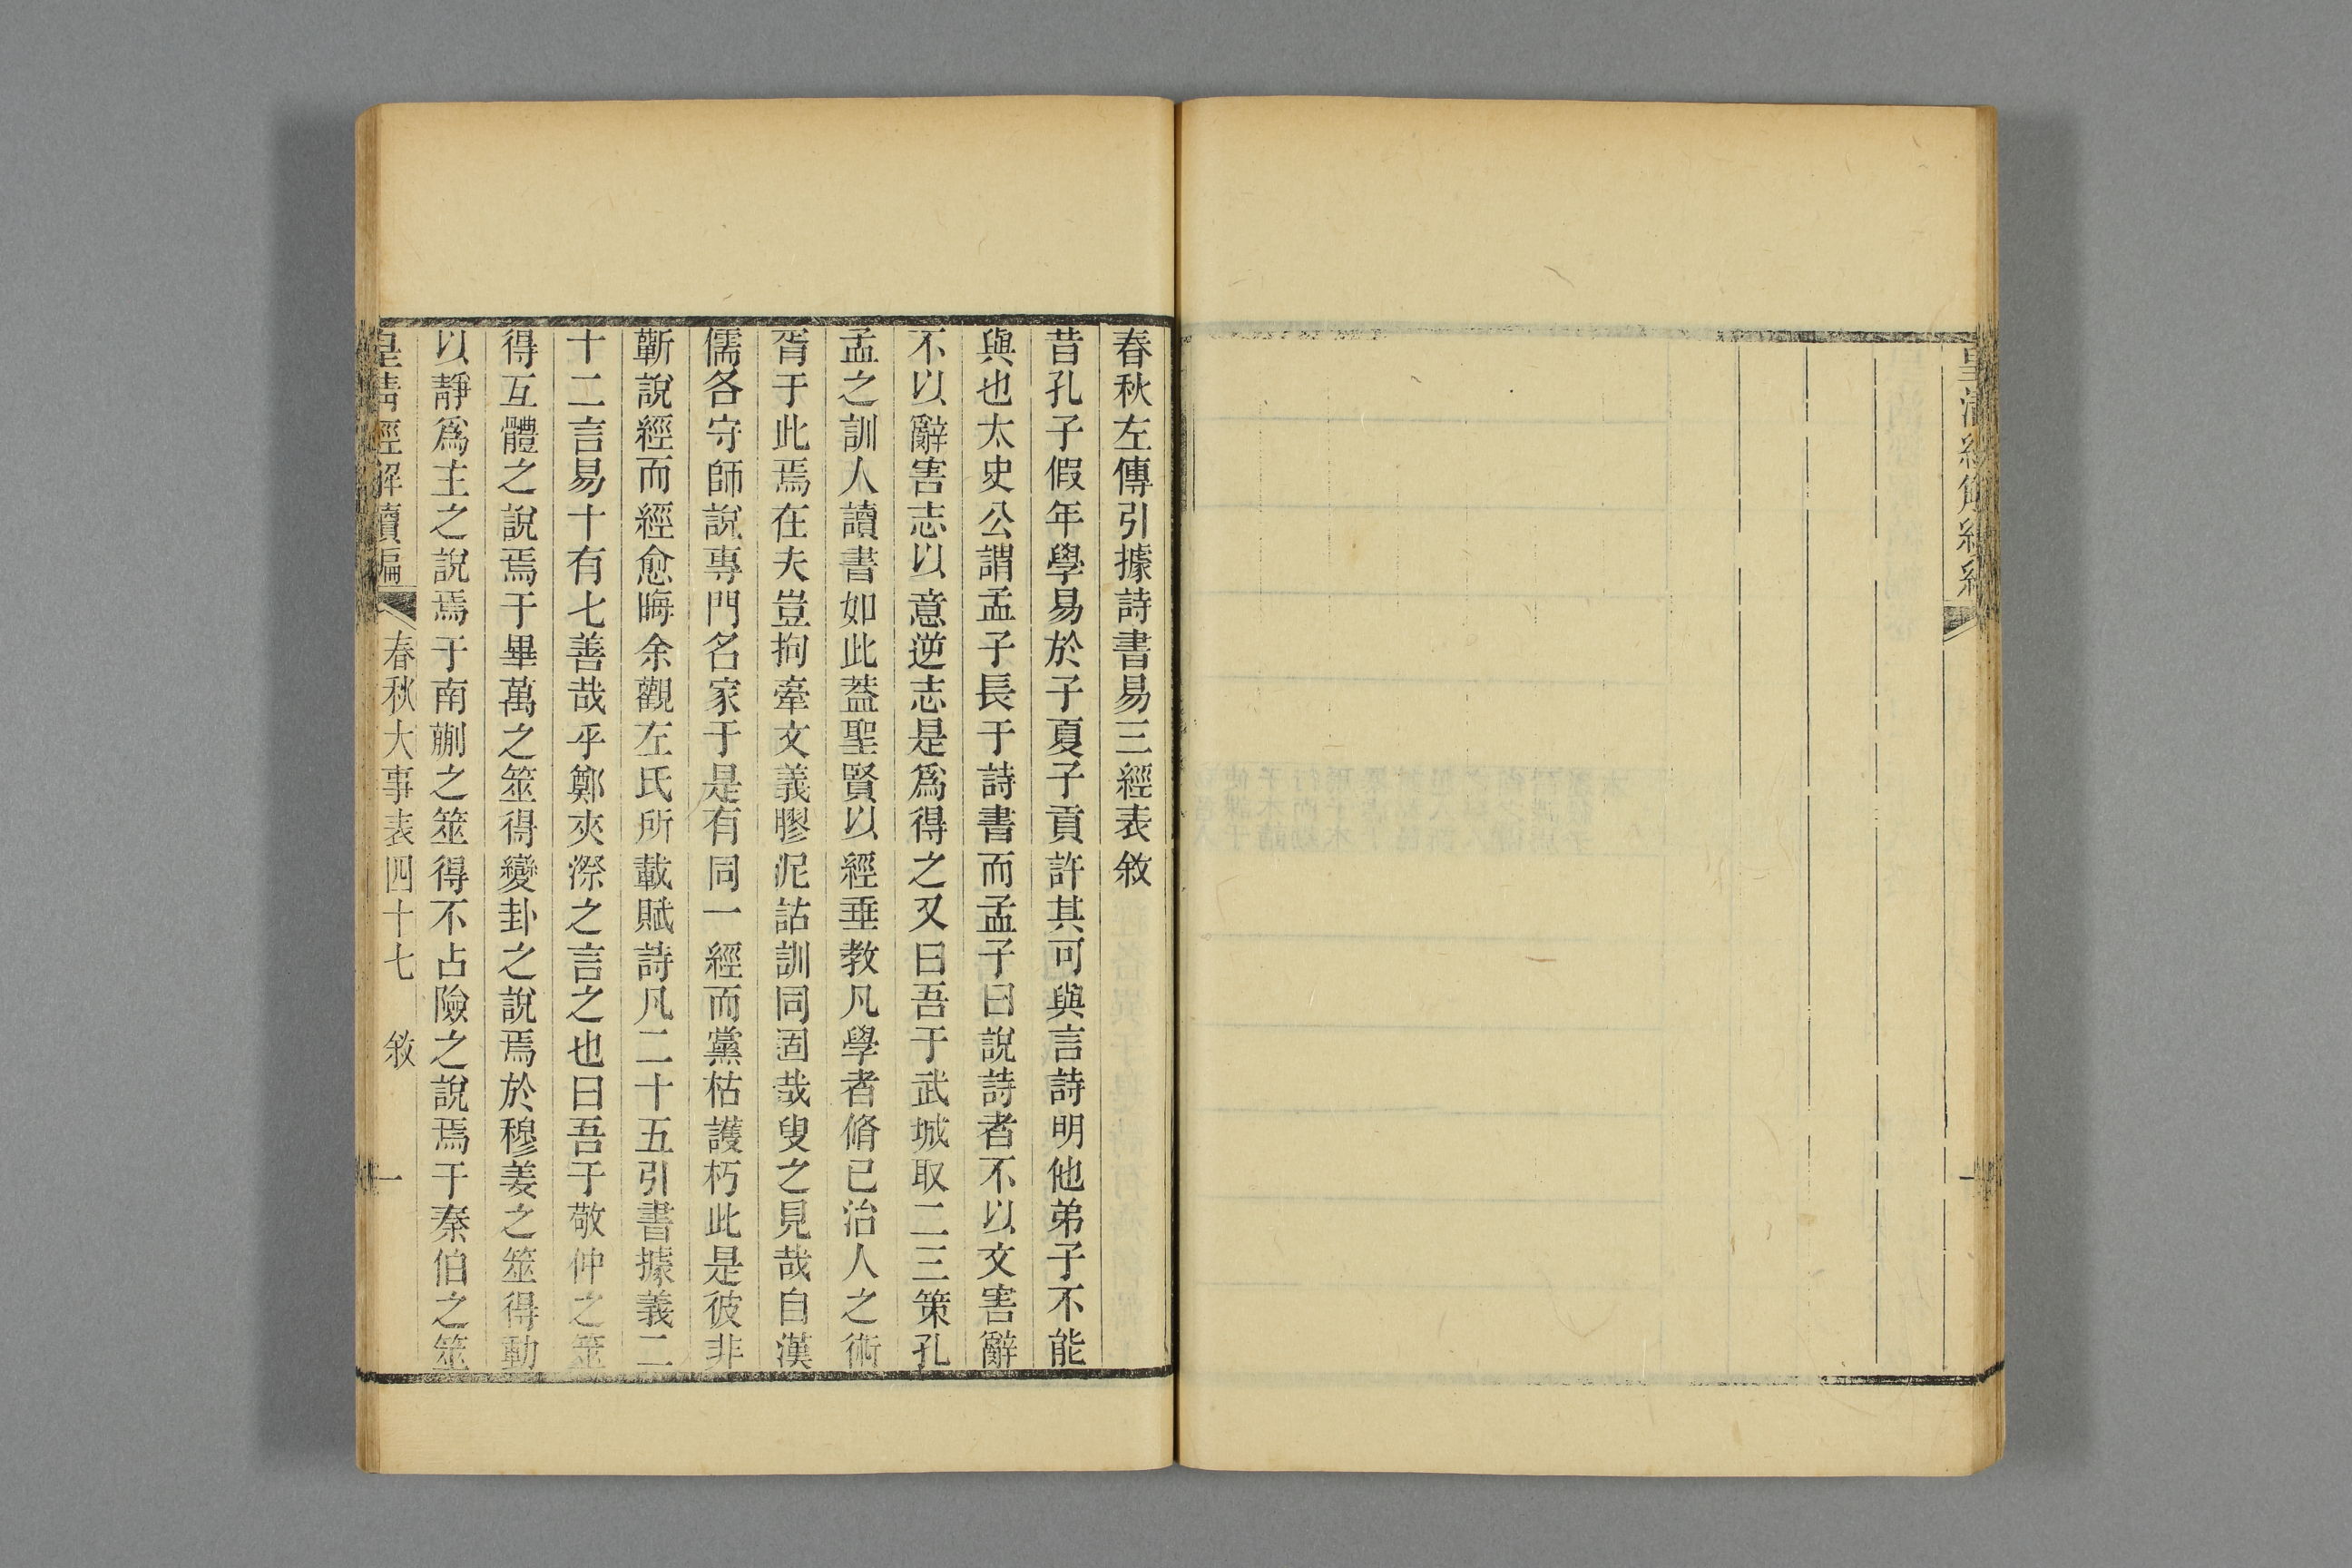 皇清經解續編
一
春秋左傳引據詩書易三經表敘
昔孔子假年學易於子夏子貢許其可與言詩明他弟子不能
與也太史公謂孟子長于詩書而孟子曰說詩者不以文害辭
不以辭害志以意逆志是爲得之又曰吾于武城取二三策孔
孟之訓人讀書如此葢聖賢以經垂教凡學者脩己治人之術
胥于此焉在夫豈拘牽文義膠泥詁訓同固哉叟之見哉自漢
儒各守師說專門名家于是有同一經而黨枯護朽此是彼非
斷說經而經愈晦余觀左氏所載賦詩凡二十五引書據義二
十二言易十有七善哉乎鄭夾漈之言之也曰吾于敬仲之筮
得互體之說焉于畢萬之筮得變卦之說焉於穆姜之筮得動
以靜爲主之說焉于南蒯之筮得不占險之說焉于秦伯之筮
皇清經解續編 春秋大事表四十七 敘 一